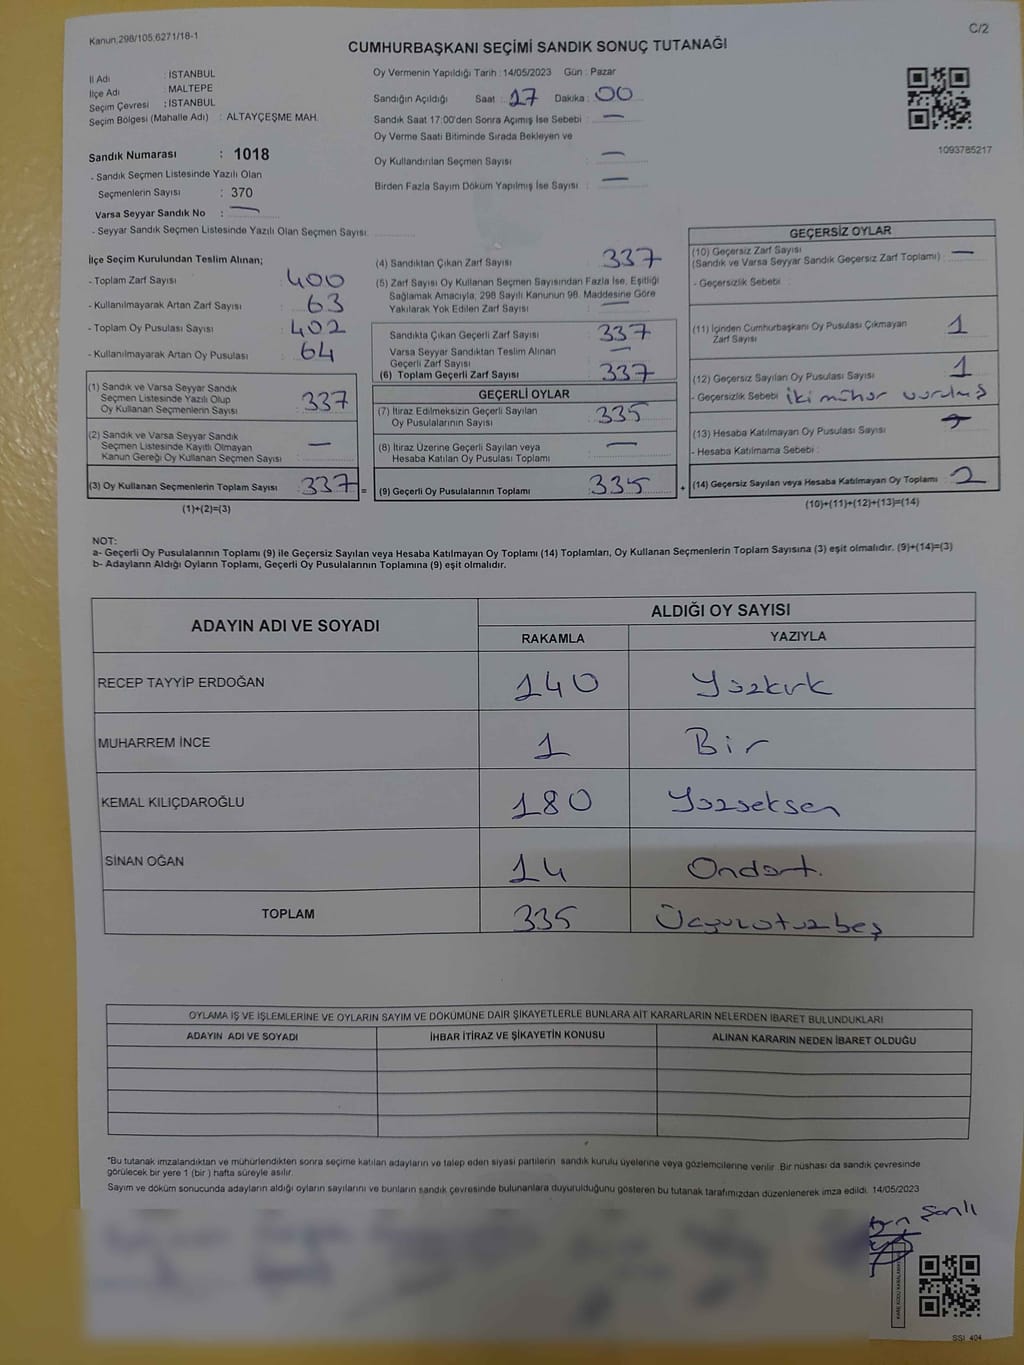 Kanun:298/105,6271/18-1
C/2
CUMHURBAŞKANI SEÇİMİ SANDIK SONUÇ TUTANAĞI
İl Adı : İSTANBUL
İlçe Adı : MALTEPE
Seçim Çevresi : İSTANBUL
Seçim Bölgesi (Mahalle Adı) : ALTAYÇEŞME MAH.
Sandık Numarası : 1018
- Sandık Seçmen Listesinde Yazılı Olan
Seçmenlerin Sayısı : 370
Varsa Seyyar Sandık No : —
- Seyyar Sandık Seçmen Listesinde Yazılı Olan Seçmen Sayısı:
Oy Vermenin Yapıldığı Tarih : 14/05/2023 Gün : Pazar
Sandığın Açıldığı Saat : 17 Dakika : 00
Sandık Saat 17:00'den Sonra Açımış İse Sebebi : —
Oy Verme Saati Bitiminde Sırada Bekleyen ve
Oy Kullandırılan Seçmen Sayısı : —
Birden Fazla Sayım Döküm Yapılmış İse Sayısı : —
1093785217
İlçe Seçim Kurulundan Teslim Alınan;
- Toplam Zarf Sayısı : 400
- Kullanılmayarak Artan Zarf Sayısı : 63
- Toplam Oy Pusulası Sayısı : 402
- Kullanılmayarak Artan Oy Pusulası : 64
(1) Sandık ve Varsa Seyyar Sandık
Seçmen Listesinde Yazılı Olup
Oy Kullanan Seçmenlerin Sayısı : 337
(2) Sandık ve Varsa Seyyar Sandık
Seçmen Listesinde Kayıtlı Olmayan
Kanun Gereği Oy Kullanan Seçmen Sayısı : —
(3) Oy Kullanan Seçmenlerin Toplam Sayısı : 337 =
(1)+(2)=(3)
(4) Sandıktan Çıkan Zarf Sayısı : 337
(5) Zarf Sayısı Oy Kullanan Seçmen Sayısından Fazla İse, Eşitliği
Sağlamak Amacıyla, 298 Sayılı Kanunun 98. Maddesine Göre
Yakılarak Yok Edilen Zarf Sayısı : —
Sandıkta Çıkan Geçerli Zarf Sayısı : 337
Varsa Seyyar Sandıktan Teslim Alınan
Geçerli Zarf Sayısı : —
(6) Toplam Geçerli Zarf Sayısı : 337
GEÇERLİ OYLAR
(7) İtiraz Edilmeksizin Geçerli Sayılan
Oy Pusulalarının Sayısı : 335
(8) İtiraz Üzerine Geçerli Sayılan veya
Hesaba Katılan Oy Pusulası Toplamı : —
(9) Geçerli Oy Pusulalarının Toplamı : 335 +
GEÇERSİZ OYLAR
(10) Geçersiz Zarf Sayısı
(Sandık ve Varsa Seyyar Sandık Geçersiz Zarf Toplamı) : —
- Geçersizlik Sebebi :
(11) İçinden Cumhurbaşkanı Oy Pusulası Çıkmayan
Zarf Sayısı : 1
(12) Geçersiz Sayılan Oy Pusulası Sayısı : 1
- Geçersizlik Sebebi : iki mühür vurulmuş
(13) Hesaba Katılmayan Oy Pusulası Sayısı
- Hesaba Katılmama Sebebi :
(14) Geçersiz Sayılan veya Hesaba Katılmayan Oy Toplamı : 2
(10)+(11)+(12)+(13)=(14)
NOT:
a- Geçerli Oy Pusulalarının Toplamı (9) ile Geçersiz Sayılan veya Hesaba Katılmayan Oy Toplamı (14) Toplamları, Oy Kullanan Seçmenlerin Toplam Sayısına (3) eşit olmalıdır. (9)+(14)=(3)
b- Adayların Aldığı Oyların Toplamı, Geçerli Oy Pusulalarının Toplamına (9) eşit olmalıdır.
ADAYIN ADI VE SOYADI
ALDIĞI OY SAYISI
RAKAMLA YAZIYLA
RECEP TAYYİP ERDOĞAN 140 Yüzkırk
MUHARREM İNCE 1 Bir
KEMAL KILIÇDAROĞLU 180 Yüzseksen
SİNAN OĞAN 14 Ondört.
TOPLAM 335 Üçyüzotuzbeş
OYLAMA İŞ VE İŞLEMLERİNE VE OYLARIN SAYIM VE DÖKÜMÜNE DAİR ŞİKAYETLERLE BUNLARA AİT KARARLARIN NELERDEN İBARET BULUNDUKLARI
ADAYIN ADI VE SOYADI İHBAR İTİRAZ VE ŞİKAYETİN KONUSU ALINAN KARARIN NEDEN İBARET OLDUĞU
*Bu tutanak imzalandıktan ve mühürlendikten sonra seçime katılan adayların ve talep eden siyasi partilerin sandık kurulu üyelerine veya gözlemcilerine verilir. Bir nüshası da sandık çevresinde
görülecek bir yere 1 (bir ) hafta süreyle asılır.
Sayım ve döküm sonucunda adayların aldığı oyların sayılarını ve bunların sandık çevresinde bulunanlara duyurulduğunu gösteren bu tutanak tarafımızdan düzenlenerek imza edildi. 14/05/2023
Şanlı
SSİ_404